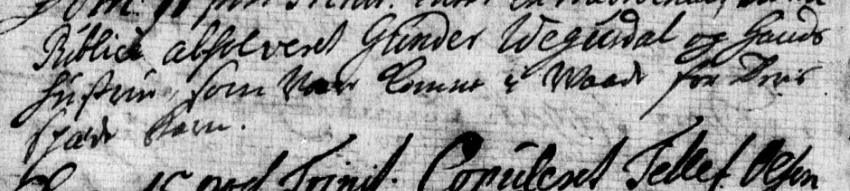 Publicè absolveret Gunder Wegusdal og Hands
Hustru, som var komne i Vaade for deris
spæde Barn.
15 post Trinit. Copuleret Tellef Olsen